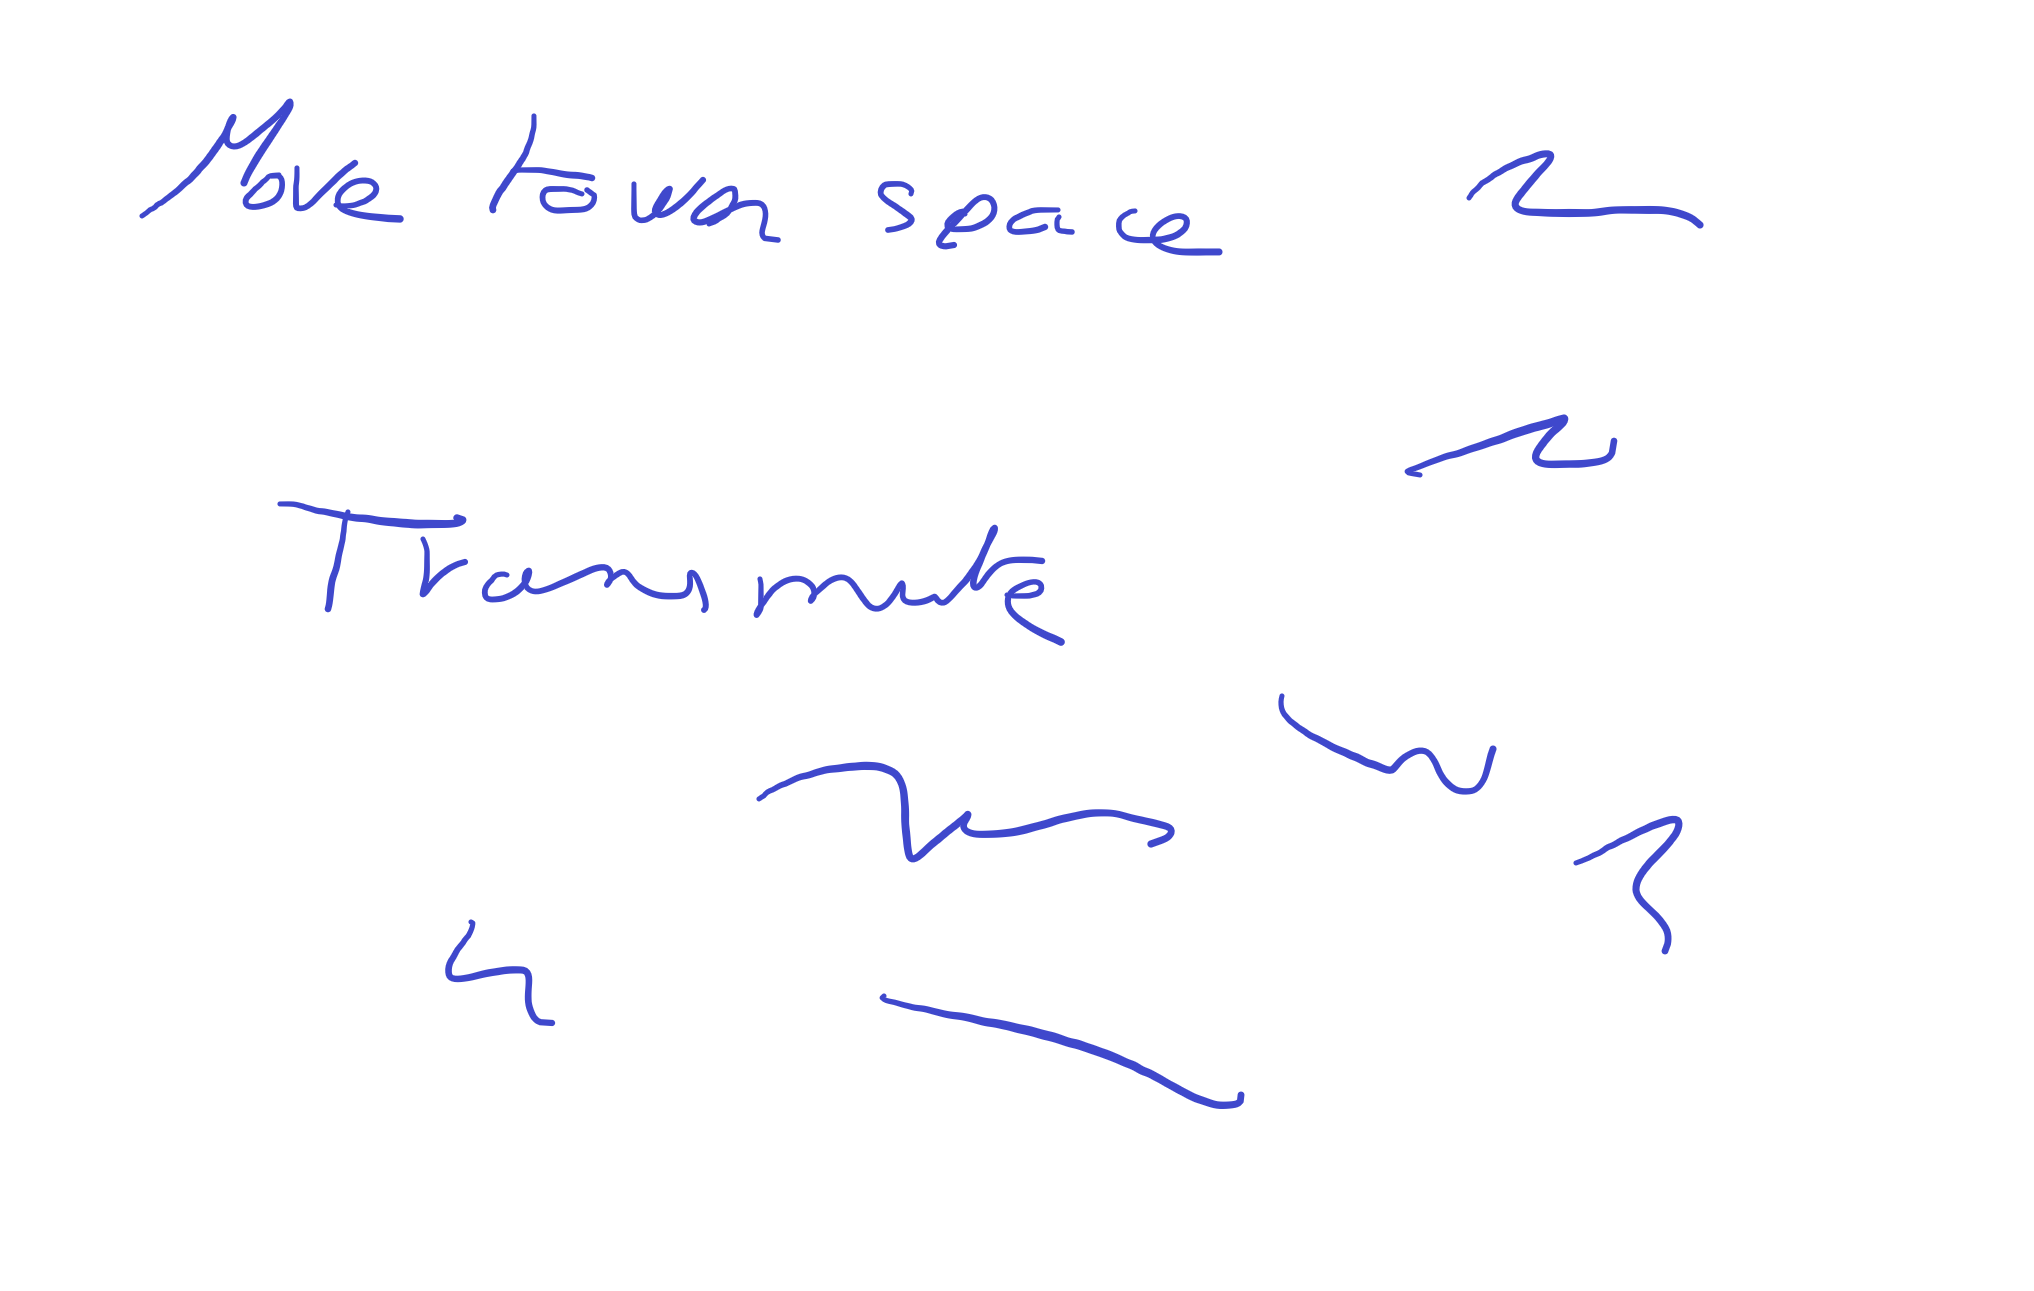 Move town space
Transmute